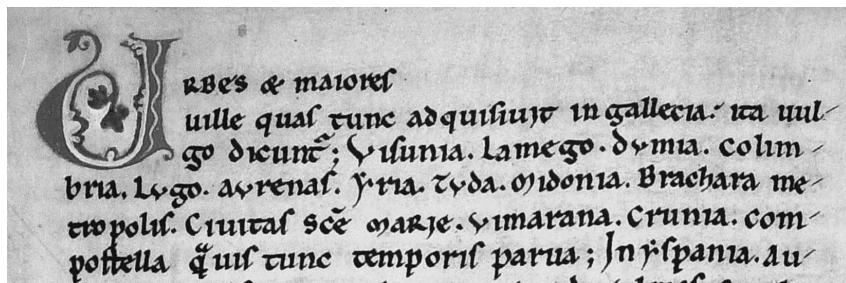 URBES & MAIORES
uille quas tunc adquisiuit in gallecia. ita uul-
go dicunt̃; Visunia. Lamego. dvmia. colim-
bria. Lvgo. avrenas. Yria. Tvda. Midonia. Brachara me-
tropolis. Ciuitas Scẽ MARIE. vimarana. crunia. com-
postella q̃uis tunc temporis parua; In yspania. Au-